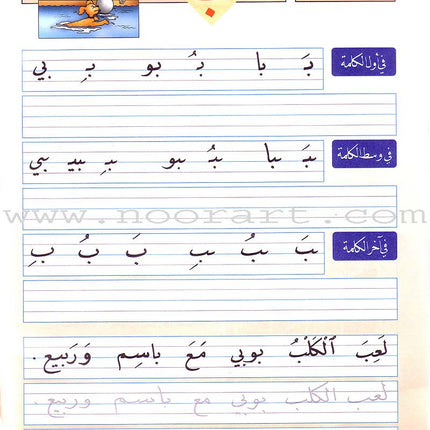 في أول الكلمة بَـ با بُـ بو بِـ بي
في وسط الكلمة ـبَـ ـبا ـبُـ ـبو ـبِـ ـبيـ ـبي
www.noorart.com
في آخر الكلمة ـبَ ـبُ ـبِ بَ بُ بِ
لَعِبَ ٱلْكَلْبُ بوبي مَعَ باسِم وَرَبيع .
لعب الكلب بوبي مع باسم وربيع .